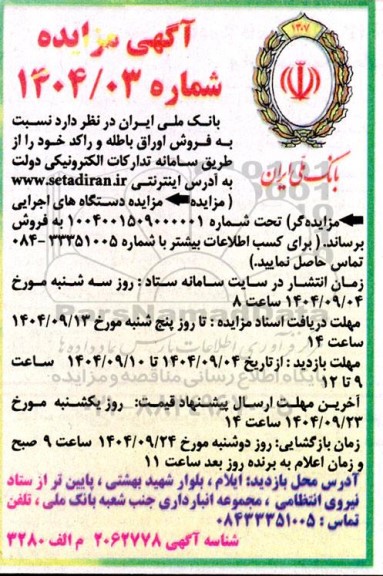 آگهی مزایده
شماره ۱۴۰۴/۰۳
۱۳۰۷
بانک ملی ایران
بانک ملی ایران در نظر دارد نسبت
به فروش اوراق باطله و راکد خود را از
طریق سامانه تدارکات الکترونیکی دولت
به آدرس اینترنتی www.setadiran.ir
( مزایده ← مزایده دستگاه های اجرایی
← مزایده‌گر) تحت شماره ۱۰۰۴۰۰۱۵۰۹۰۰۰۰۰۱ به فروش
برساند. ( برای کسب اطلاعات بیشتر با شماره ۳۳۳۵۱۰۰۵-۰۸۴
تماس حاصل نمایید.)
زمان انتشار در سایت سامانه ستاد : روز سه شنبه مورخ
۱۴۰۴/۰۹/۰۴ ساعت ۸
مهلت دریافت اسناد مزایده : تا روز پنچ شنبه مورخ ۱۴۰۴/۰۹/۱۳
ساعت ۱۴
مهلت بازدید : از تاریخ ۱۴۰۴/۰۹/۰۴ تا ۱۴۰۴/۰۹/۱۰ ساعت
۹ تا ۱۲
آخرین مهلت ارسال پیشنهاد قیمت: روز یکشنبه مورخ
۱۴۰۴/۰۹/۲۳ ساعت ۱۴
زمان بازگشایی: روز دوشنبه مورخ ۱۴۰۴/۰۹/۲۴ ساعت ۹ صبح
و زمان اعلام به برنده روز بعد ساعت ۱۱
آدرس محل بازدید: ایلام ، بلوار شهید بهشتی ، پایین تر از ستاد
نیروی انتظامی ، مجموعه انبارداری جنب شعبه بانک ملی ، تلفن
تماس : ۰۸۴۳۳۳۵۱۰۰۵
شناسه آگهی ۲۰۶۲۷۷۸ م الف ۳۲۸۰
ParsNamadData
پایگاه اطلاع رسانی مناقصه و مزایده